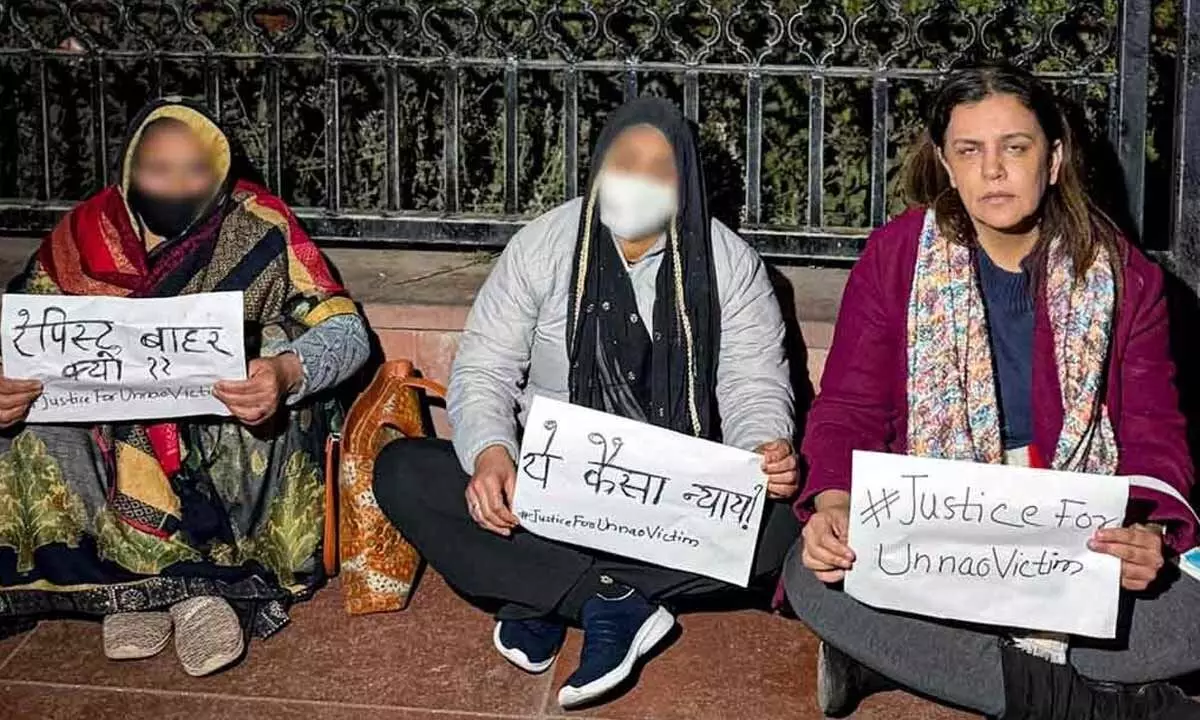 रेपिस्ट बाहर
क्यों ??
#JusticeForUnnaoVictim
ये कैसा न्याय?
#JusticeForUnnaoVictim
#Justice For
UnnaoVictim